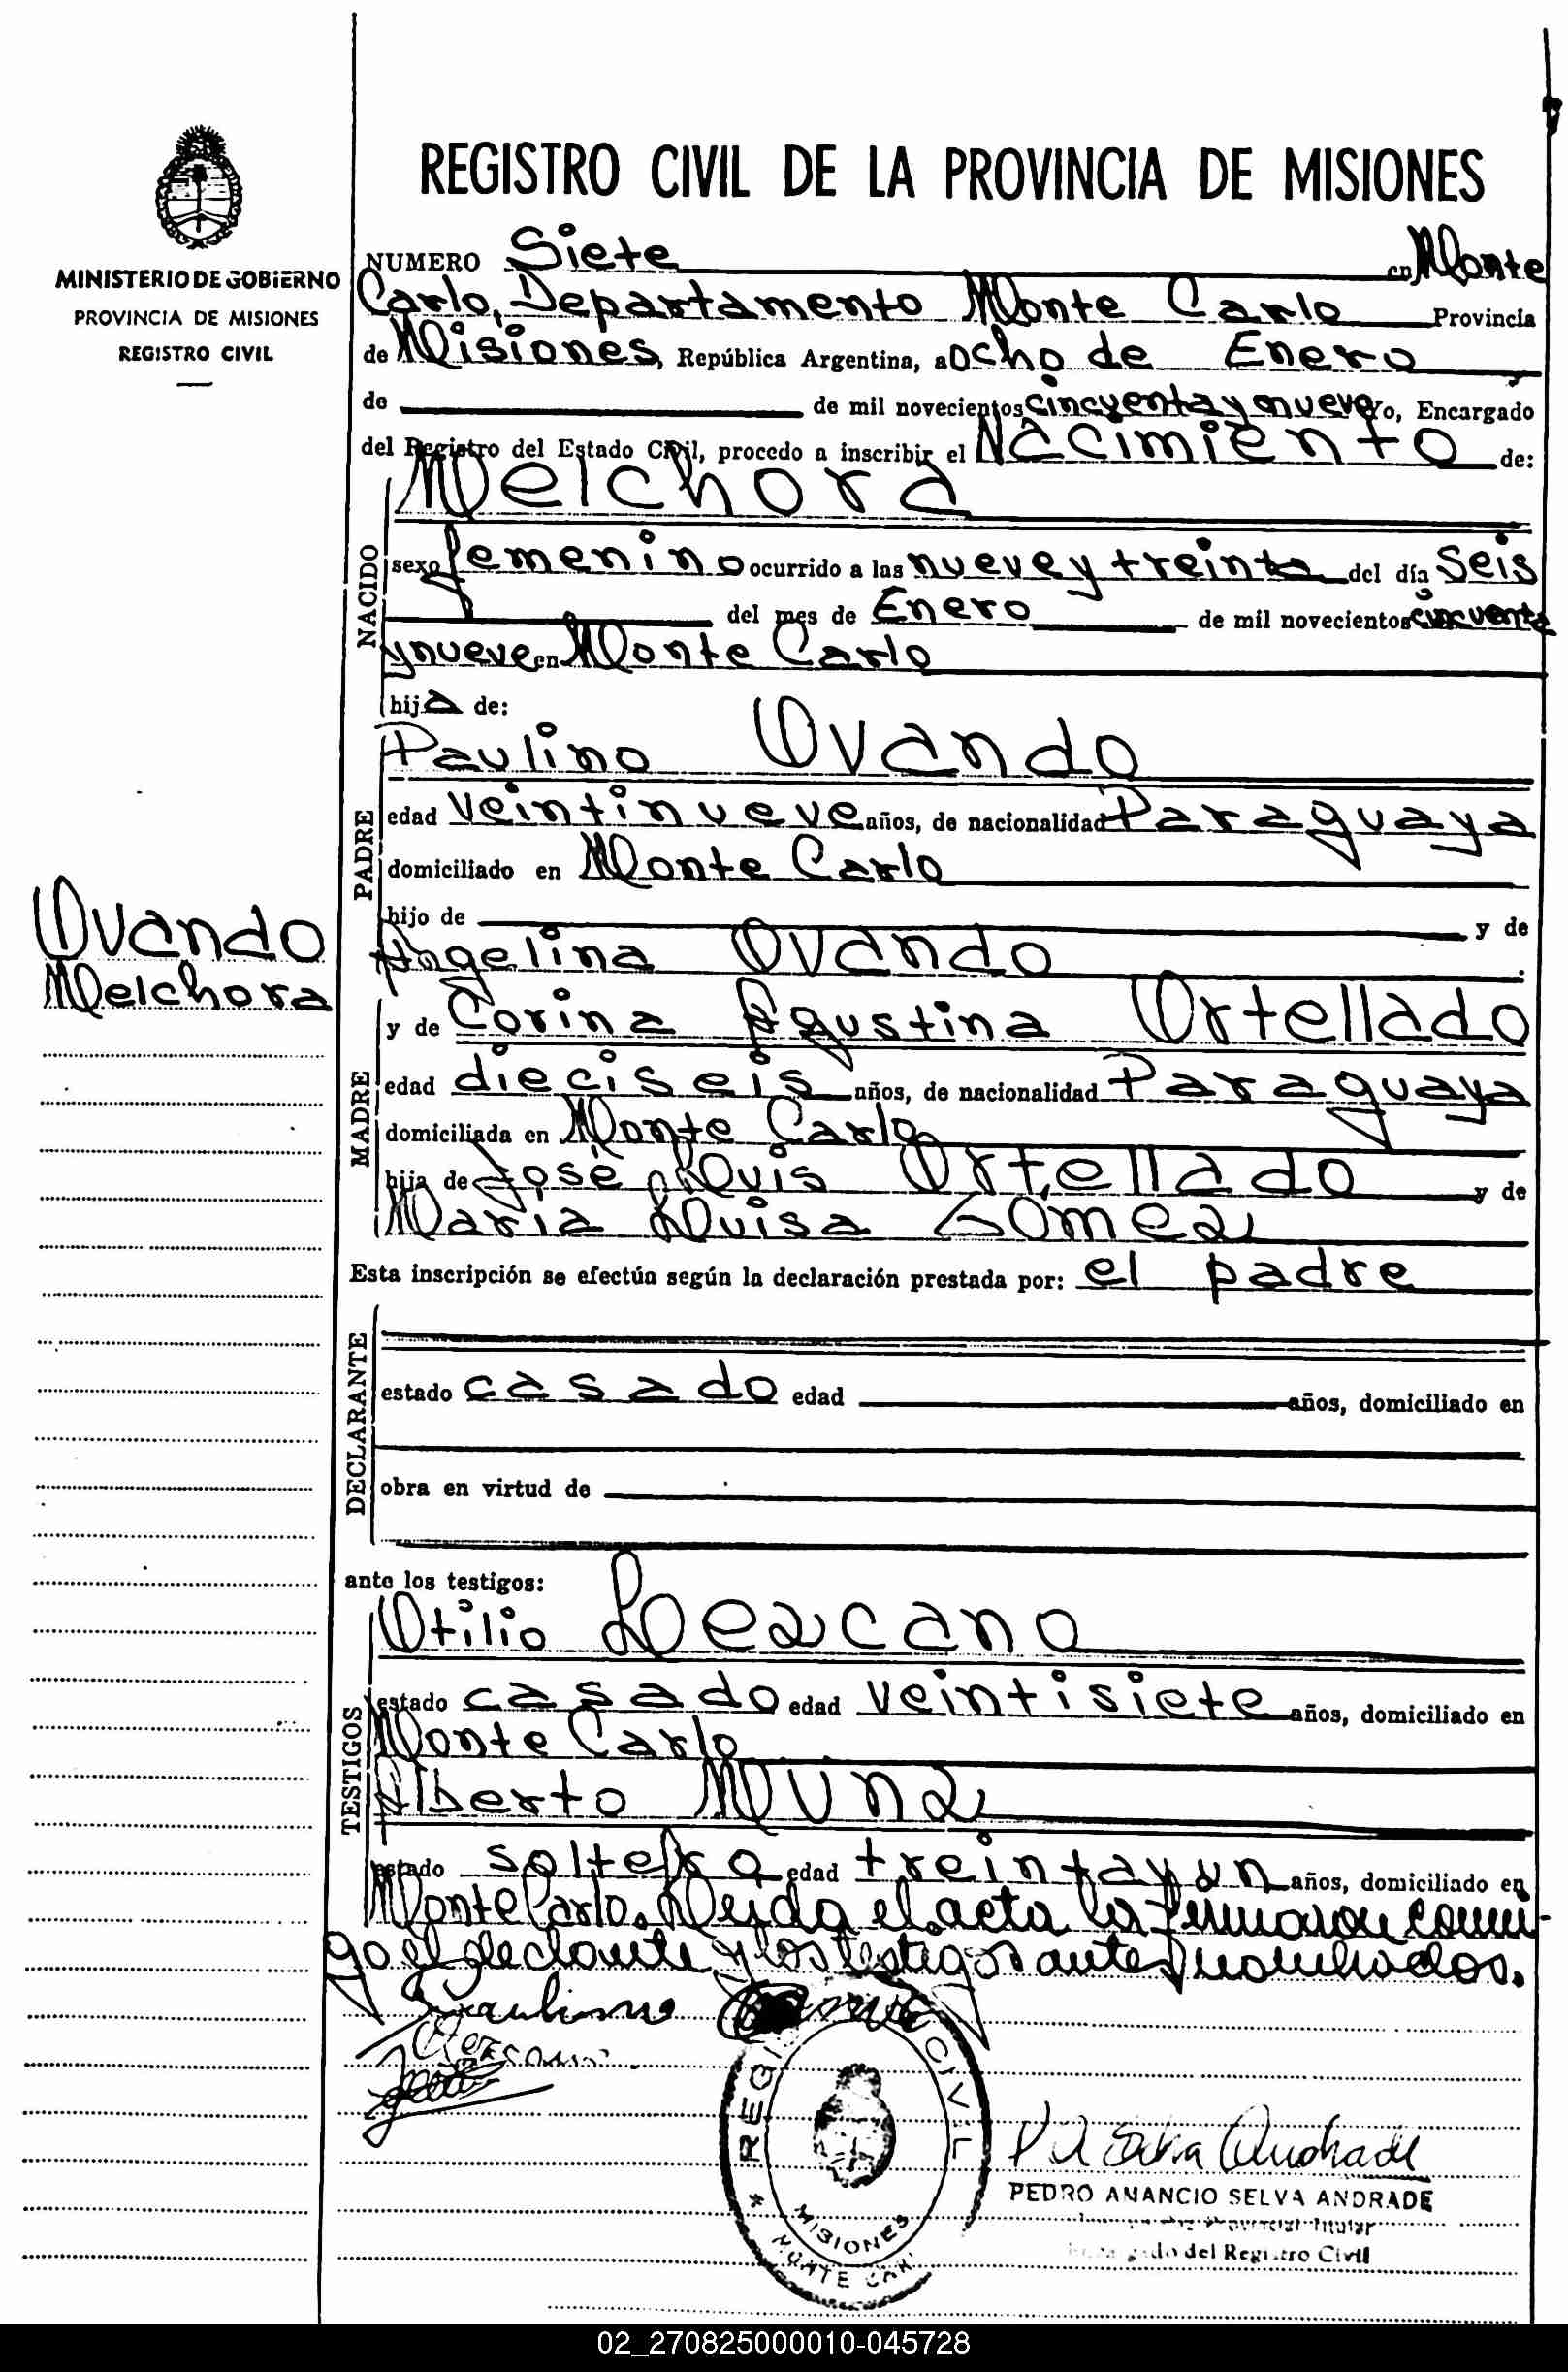 REGISTRO CIVIL DE LA PROVINCIA DE MISIONES
MINISTERIO DE GOBIERNO
PROVINCIA DE MISIONES
REGISTRO CIVIL
NUMERO Siete en Monte
Carlo, Departamento Monte Carlo Provincia
de Misiones, República Argentina, a ocho de Enero
de de mil novecientos cincuenta y nueve Yo, Encargado
del Registro del Estado Civil, procedo a inscribir el Nacimiento de:
Melchora
NACIDO
sexo femenino ocurrido a las nueve y treinta del día Seis
del mes de Enero de mil novecientos cincuenta
y nueve en Monte Carlo
hija de:
Paulino Ovando
PADRE
edad veintinueve años, de nacionalidad Paraguaya
domiciliado en Monte Carlo
hijo de y de
Angelina Ovando
Ovando
Melchora
y de Corina Agustina Ortellado
MADRE
edad dieciseis años, de nacionalidad Paraguaya
domiciliada en Monte Carlo
hija de José Luis Ortellado y de
Maria Luisa Gómez
Esta inscripción se efectúa según la declaración prestada por: el padre
DECLARANTE
estado casado edad años, domiciliado en
obra en virtud de
ante los testigos:
Otilio Lezcano
TESTIGOS
estado casado edad veintisiete años, domiciliado en
Monte Carlo
Alberto Munz
estado soltero edad treinta y un años, domiciliado en
Monte Carlo. Leida el acta la firmaron conmi-
go el declante y los testigos antes nombrados.
Paulino
REGISTRO CIVIL
MISIONES
MONTE CARLO
P A Selva Andrade
PEDRO AMANCIO SELVA ANDRADE
Provincial Titular
Encargado del Registro Civil
02_270825000010-045728